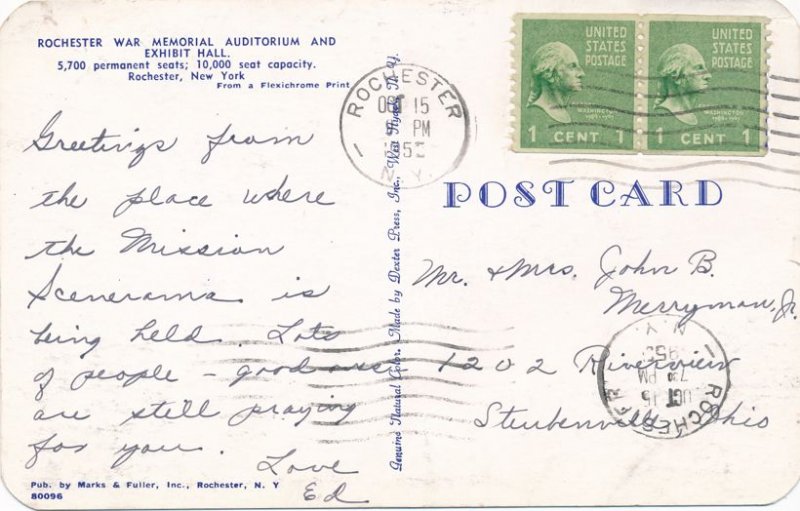 ROCHESTER WAR MEMORIAL AUDITORIUM AND
EXHIBIT HALL.
5,700 permanent seats; 10,000 seat capacity.
Rochester, New York
From a Flexichrome Print
Greetings from
the place where
the Mission
Scenerama is
being held. Lots
of people - good
are still praying
for you.
Love
Ed
Pub. by Marks & Fuller, Inc., Rochester, N. Y
80096
Genuine Natural Color. Made by Dexter Press, Inc., West Nyack, N. Y.
ROCHESTER
OCT 15
PM
195
N.Y.
UNITED
STATES
POSTAGE
WASHINGTON
1 CENT 1
UNITED
STATES
POSTAGE
WASHINGTON
1 CENT 1
POST CARD
Mr. & Mrs. John B.
Merryman, Jr.
1202 Riverview
Steubenville, Ohio
ROCHESTER
OCT 15
7 30 PM
195
N.Y.